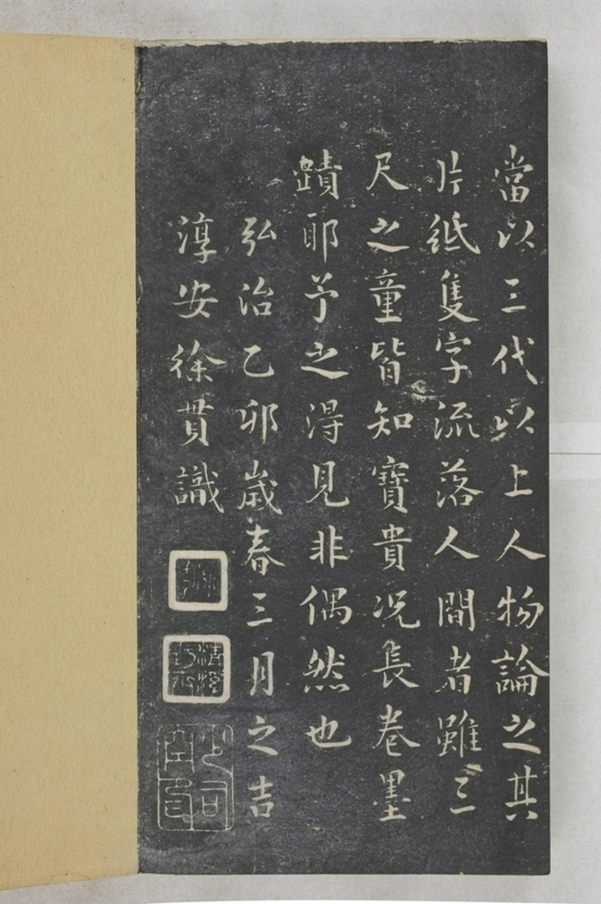 當以三代以上人物論之其
片紙隻字流落人間者雖三
尺之童皆知寶貴况長卷墨
蹟耶予之得見非偶然也
弘治乙卯歲春三月之吉
淳安徐貫識